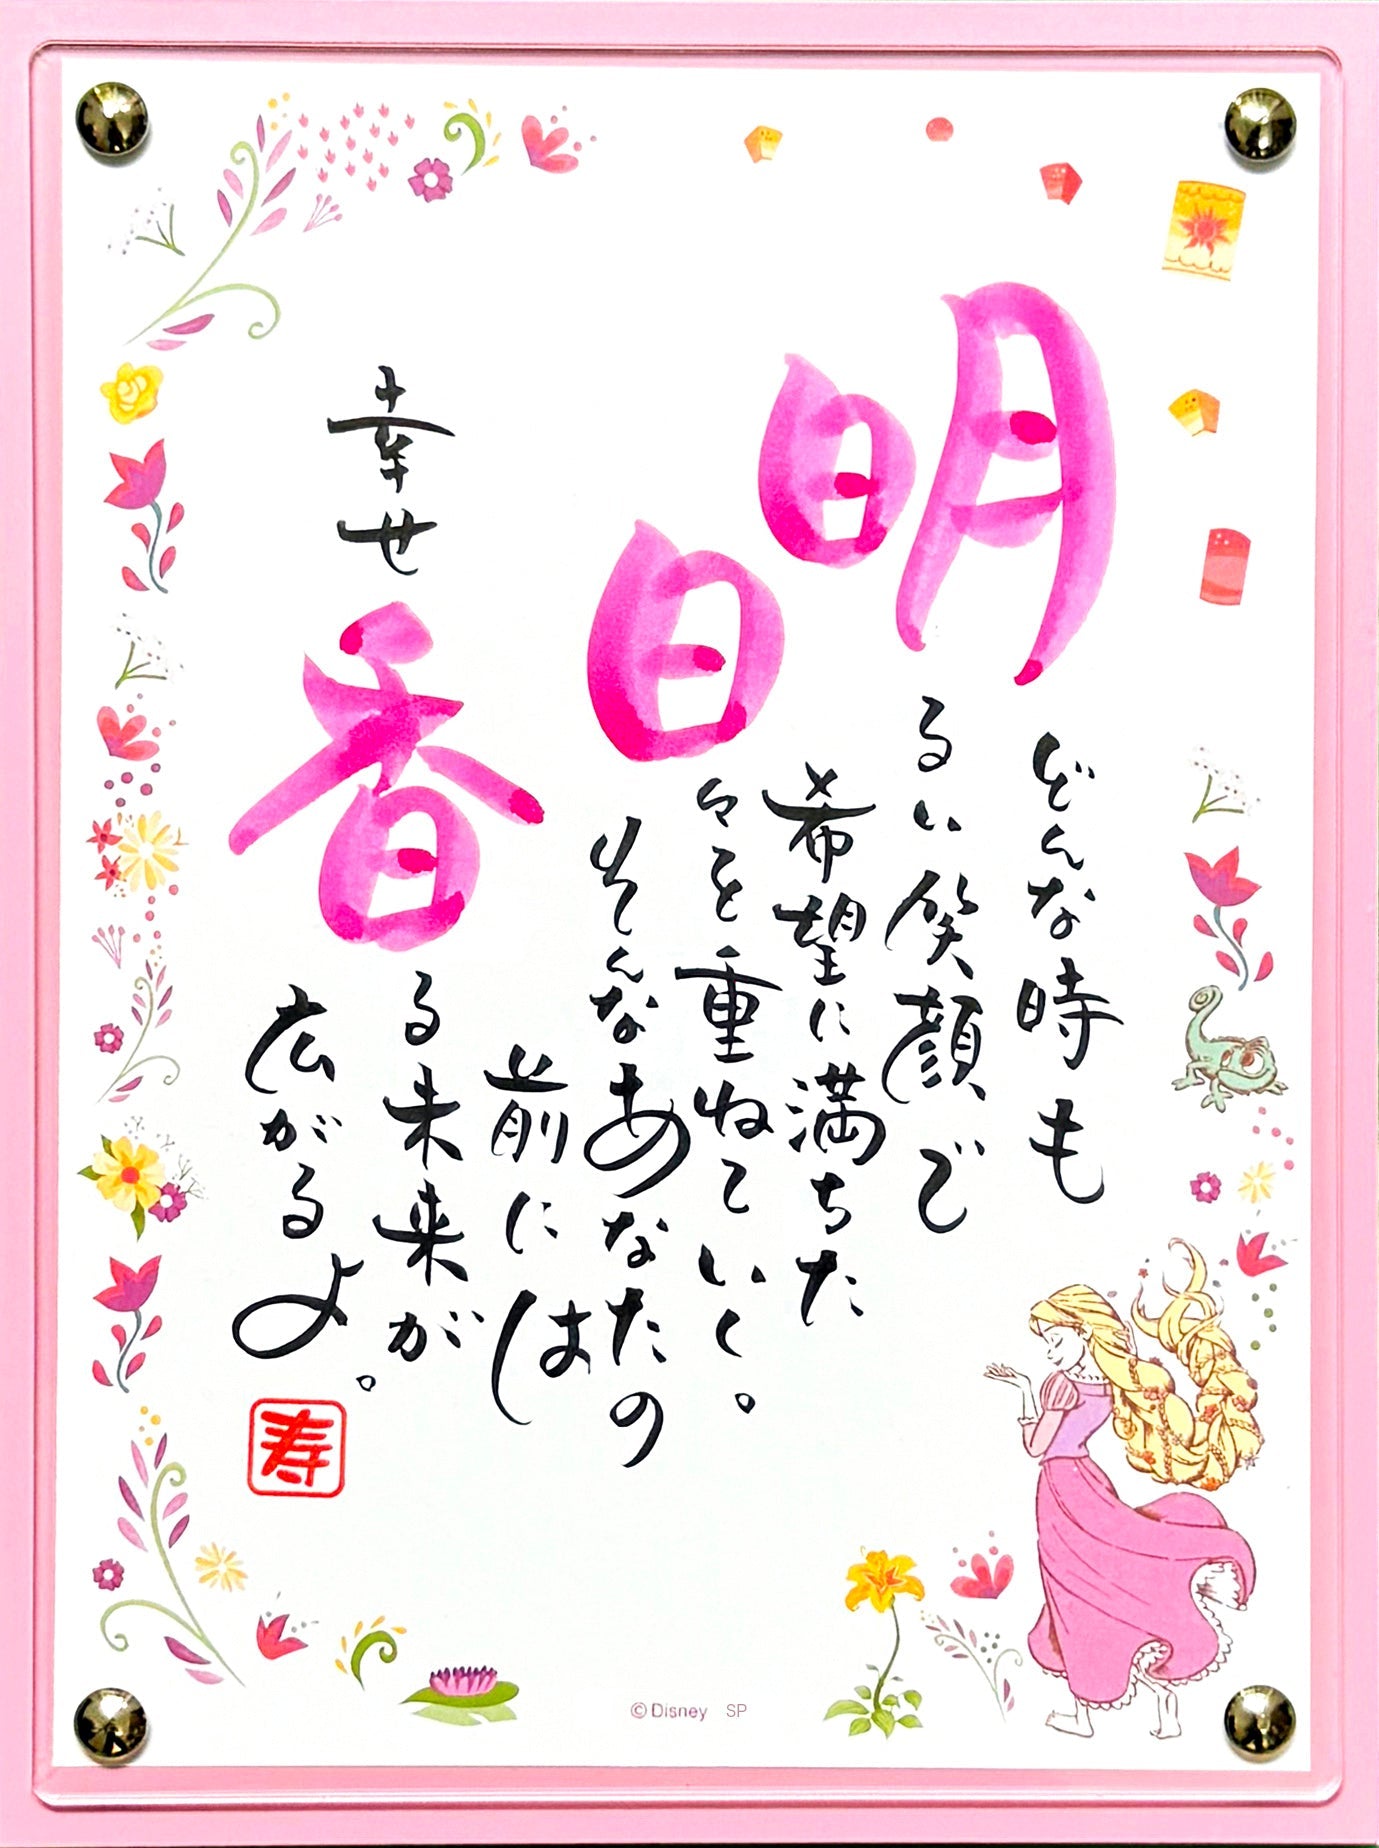 どんな時も
明るい笑顔で
希望に満ちた
日々を重ねていく。
そんなあなたの
前には
幸せ香る未来が
広がるよ。
寿
©Disney SP